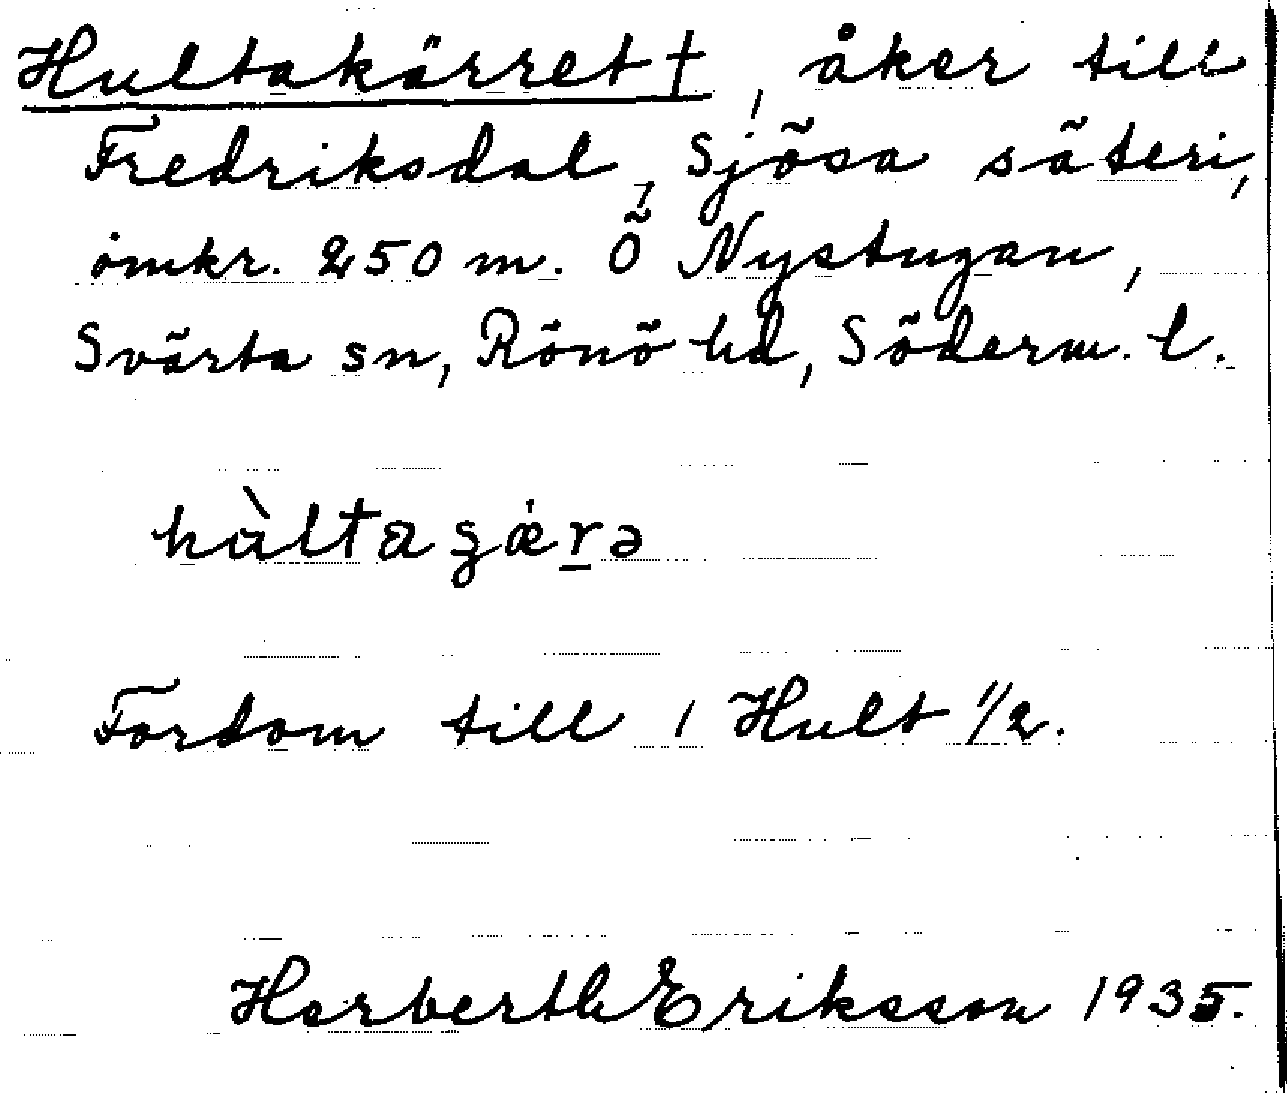 Hultakärret †, åker till
Fredriksdal, Sjösa säteri,
omkr. 250 m. Ö Nystugan,
Svärta sn, Rönö hd, Söderm. l.
hùltaʒæ̇r̲ə
Fordom till 1 Hult 1/2.
Herberth Eriksson 1935.